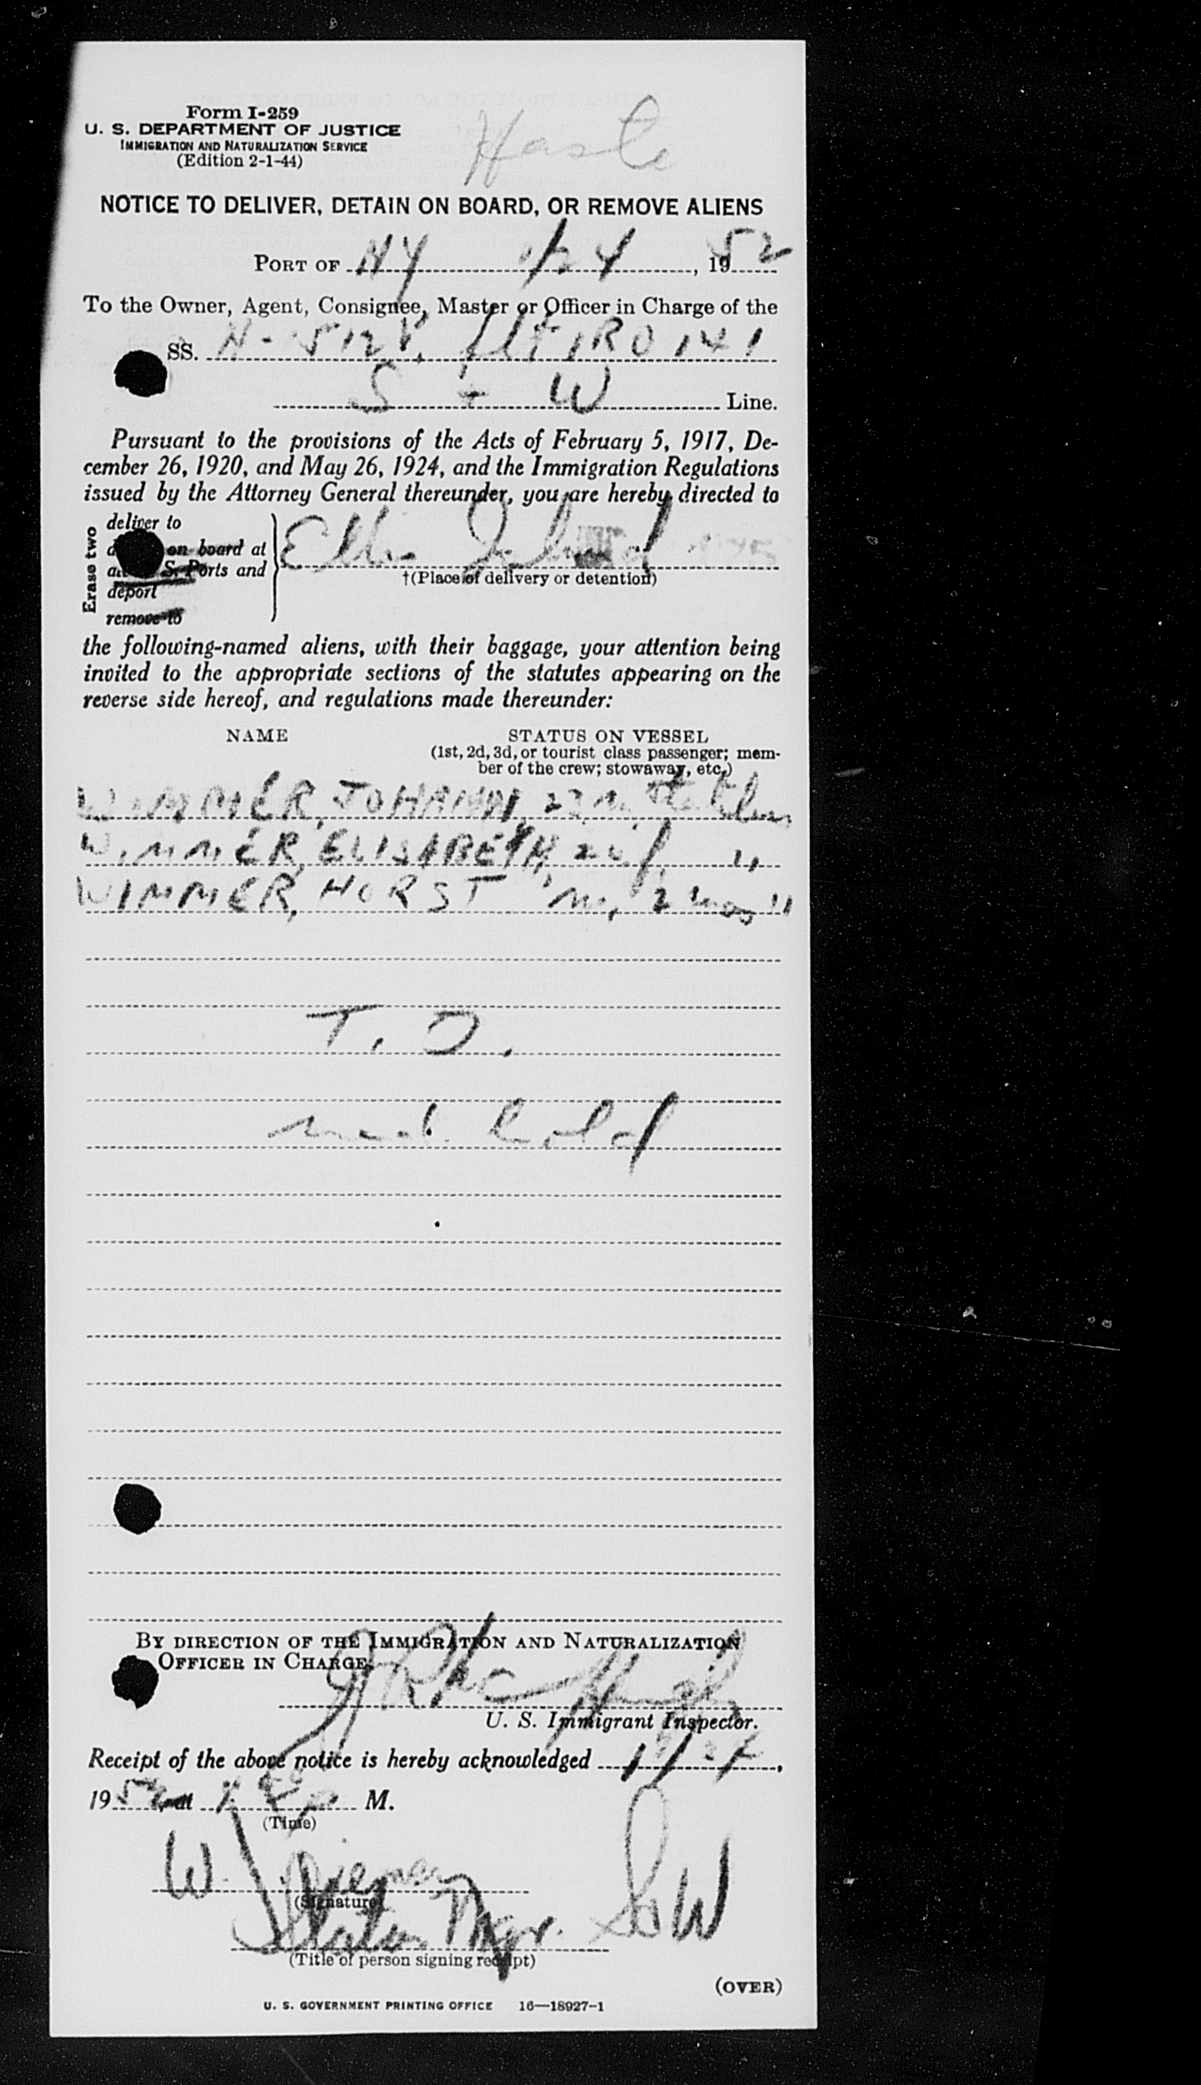 Form I-259
U. S. DEPARTMENT OF JUSTICE
IMMIGRATION AND NATURALIZATION SERVICE
(Edition 2-1-44)
NOTICE TO DELIVER, DETAIN ON BOARD, OR REMOVE ALIENS
PORT OF NY 1/24, 1952
To the Owner, Agent, Consignee, Master or Officer in Charge of the
SS. N-5128, flt IRO 141
S + W Line.
Pursuant to the provisions of the Acts of February 5, 1917, De-
cember 26, 1920, and May 26, 1924, and the Immigration Regulations
issued by the Attorney General thereunder, you are hereby directed to
Erase two
deliver to
on board at
S. Ports and
deport
remove to
Ellis Island
†(Place of delivery or detention)
the following-named aliens, with their baggage, your attention being
invited to the appropriate sections of the statutes appearing on the
reverse side hereof, and regulations made thereunder:
NAME STATUS ON VESSEL
(1st, 2d, 3d, or tourist class passenger; mem-
ber of the crew; stowaway, etc.)
WIMMER, JOHANN, 22, m,
WIMMER, ELISABETH, f, "
WIMMER, HORST m, 2 mos "
T. D.
med. hold
BY DIRECTION OF THE IMMIGRATION AND NATURALIZATION
OFFICER IN CHARGE
U. S. Immigrant Inspector.
Receipt of the above notice is hereby acknowledged 1/24,
1952, at M.
(Time)
W.
(Signature)
Station Mgr. S+W
(Title of person signing receipt)
(OVER)
U. S. GOVERNMENT PRINTING OFFICE 16—18927-1